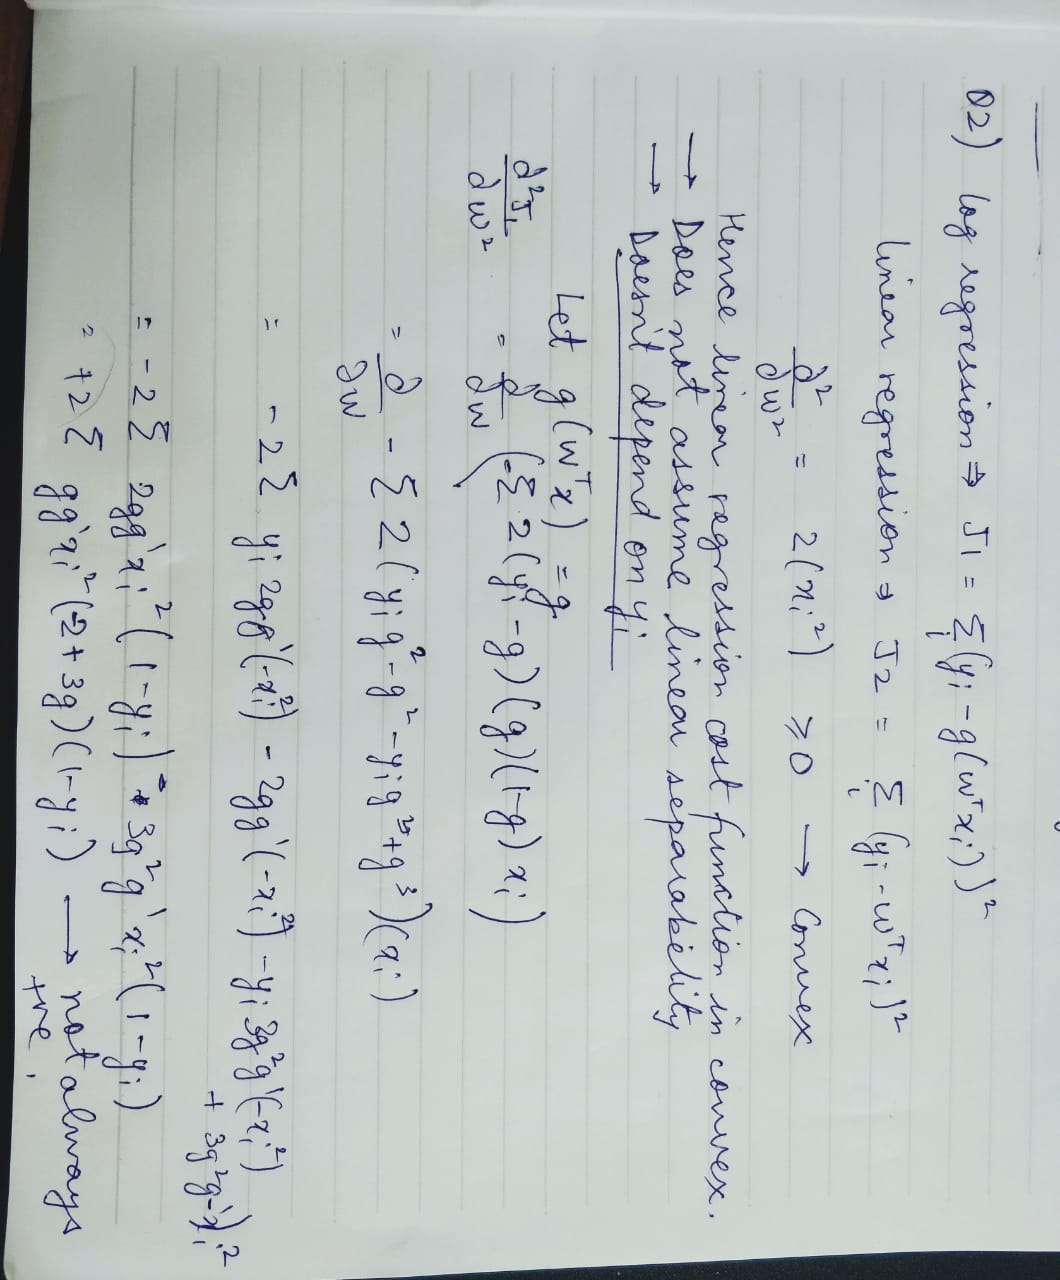 Q2) log regression ⇒ J1 = Σi (yi - g(wᵀxi))²
linear regression ⇒ J2 = Σi (yi - wᵀxi)²
∂²/∂w² = 2(xi²) ≥ 0 → convex
Hence linear regression cost function in convex.
→ Does not assume linear separability
→ Doesn't depend on yi
Let g(wᵀx) = g
∂²J1/∂w² = ∂/∂w (-Σ 2(yi - g)(g)(1-g) xi)
= ∂/∂w - Σ 2(yi g² - g² - yi g³ + g³)(xi)
= - 2Σ yi 2gg'(-xi²) - 2gg'(-xi²) - yi 3g²g'(-xi²)
+ 3g²g'xi²
= - 2Σ 2gg'xi²(1-yi) - 3g²g'xi²(1-yi)
= +2Σ gg'xi²(-2+3g)(1-yi) → not always
+ve.